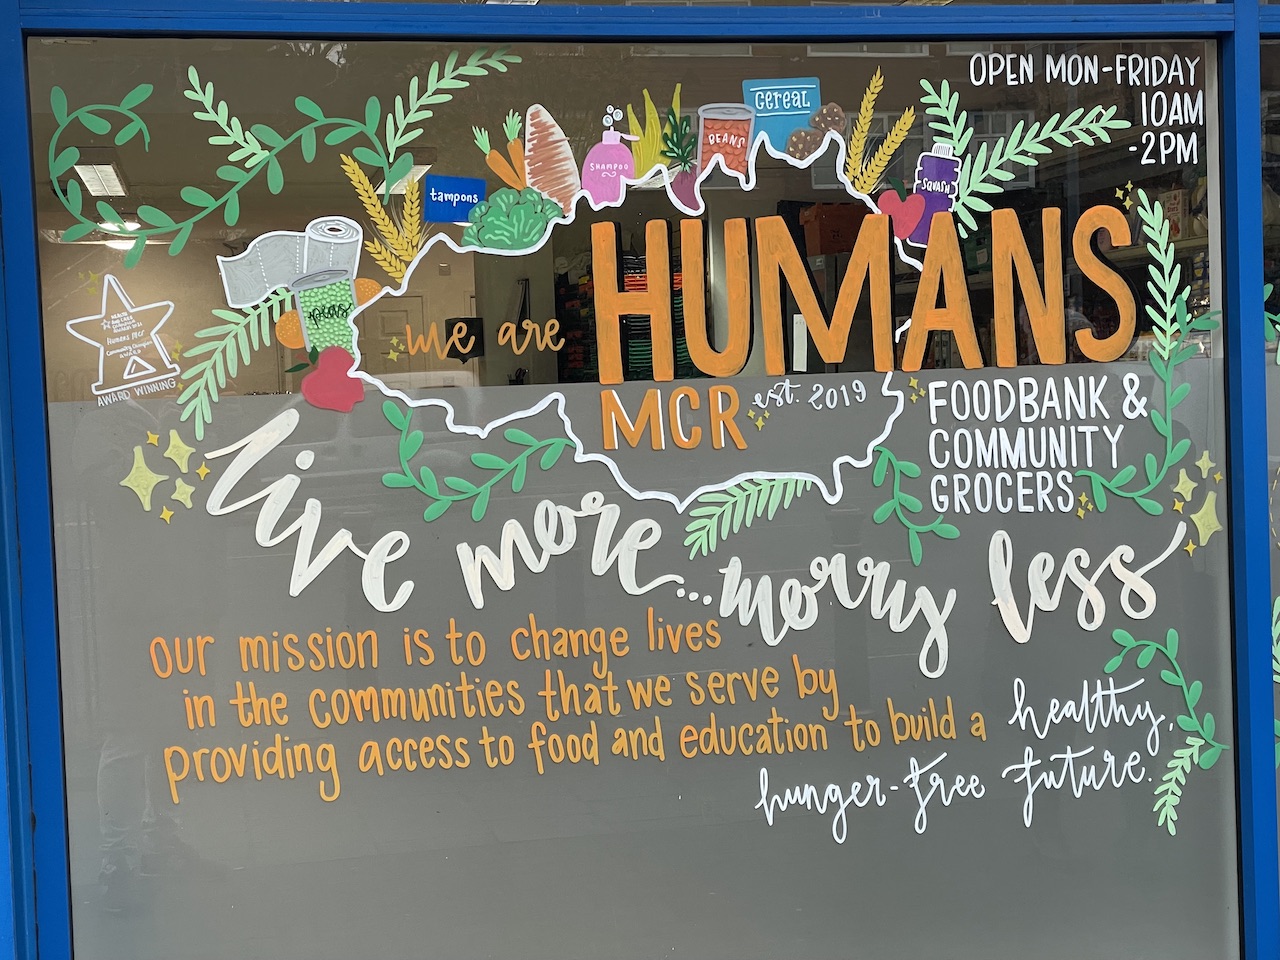 OPEN MON-FRIDAY
10AM
-2PM
cereal
BEANS
SHAMPOO
tampons
SQUASH
peas
Humans MCR
Community Champion
AWARD WINNING
we are HUMANS
MCR est. 2019
FOODBANK &
COMMUNITY
GROCERS
live more... worry less
our mission is to change lives
in the communities that we serve by
providing access to food and education to build a healthy,
hunger-free future.